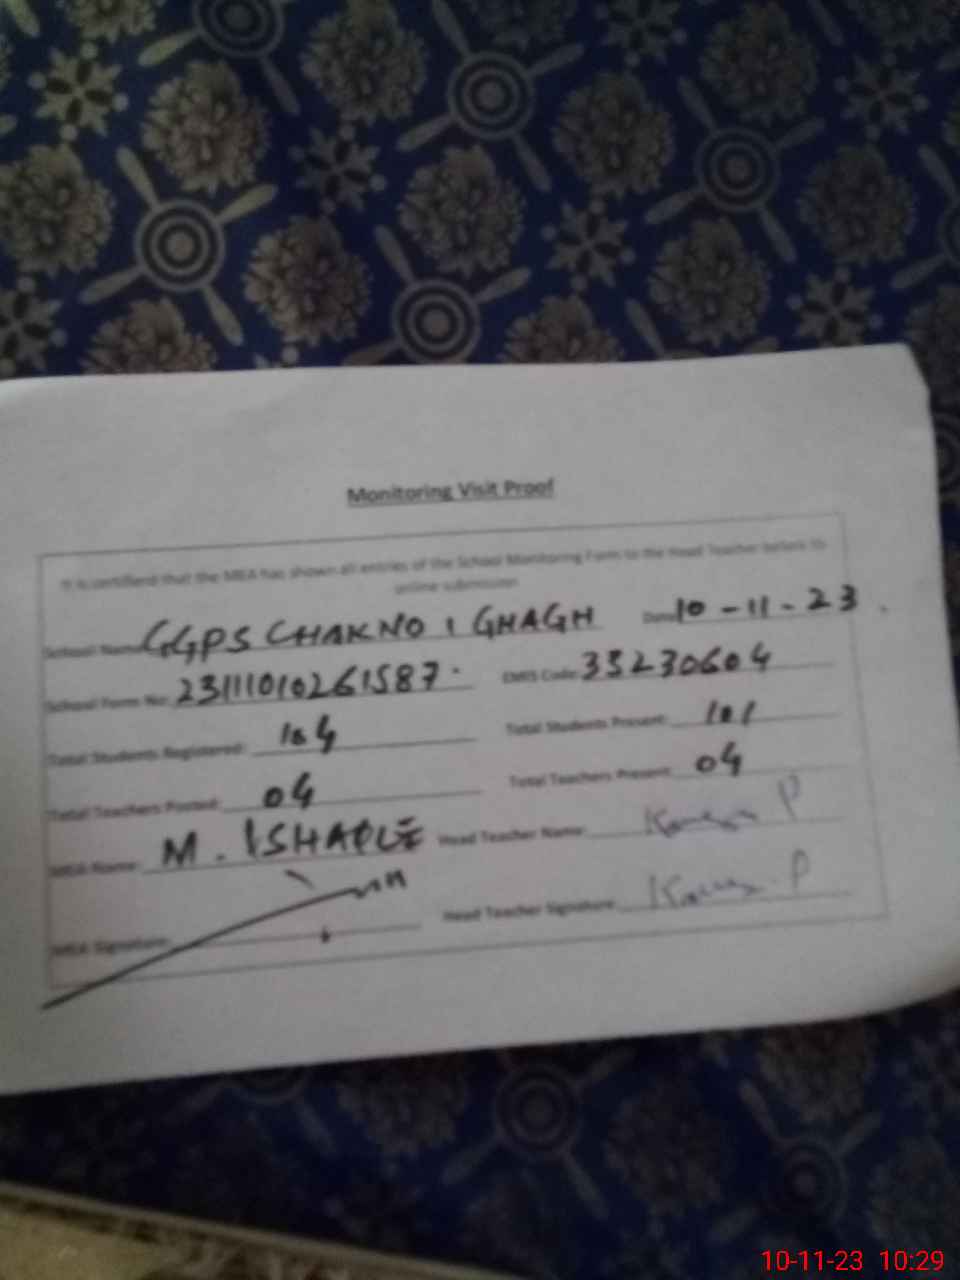 Monitoring Visit Proof
It is certified that the MEA has shown all entries of the School Monitoring Form to the Head Teacher before its
online submission
School Name: GGPS CHAK NO 1 GHAGH Date: 10-11-23
School Form No: 23111010261587 EMIS Code: 33230604
Total Students Registered: 104 Total Students Present: 101
Total Teachers Posted: 04 Total Teachers Present: 04
MEA Name: M. ISHAQUE Head Teacher Name:
MEA Signature: Head Teacher Signature:
10-11-23 10:29